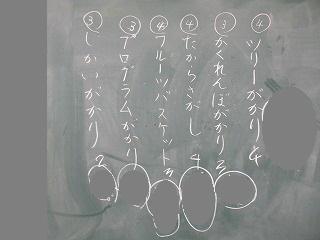 ④ ツリーがかり 4
③ かくれんぼがかり 3
④ たからさがし 4
④ フルーツバスケット 3
③ プログラムがかり
③ しかいがかり 2